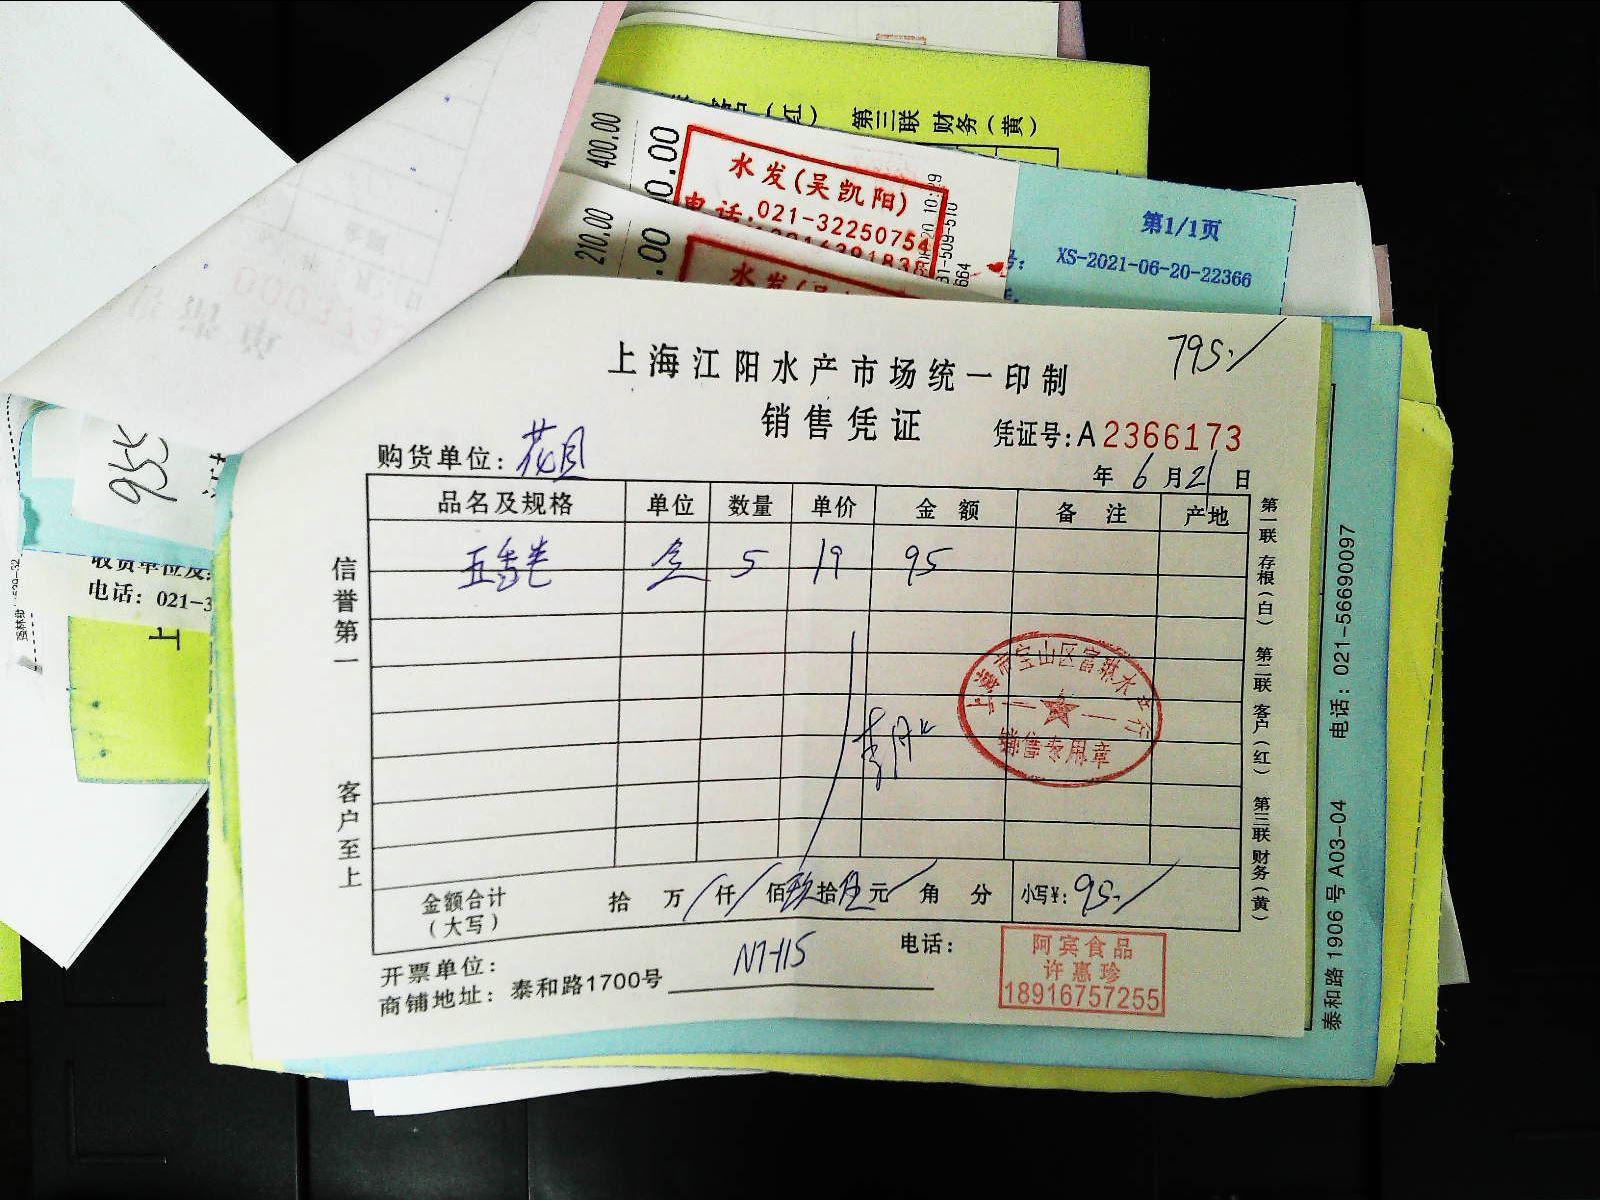 第三联 财务(黄)
400.00
0.00
水发(吴凯阳)
电话.021-32250754
210.00
.00
水发(吴
第1/1页
号: XS-2021-06-20-22366
上海江阳水产市场统一印制
795./
销售凭证
凭证号:A2366173
购货单位:花月
年 6 月 21 日
品名及规格 单位 数量 单价 金额 备注 产地
五香卷 盒 5 19 95
信誉第一
客户至上
第一联 存根(白) 第二联 客户(红) 第三联 财务(黄)
上海市宝山区富琳水产行
销售专用章
金额合计(大写) 拾 万/仟/佰玖拾伍元/角 分 小写¥:95./
开票单位:
电话:
商铺地址:泰和路1700号
N7-115
阿宾食品
许惠珍
18916757255
泰和路 1906 号 A03-04 电话:021-56690097
955
收货单位及:
电话:021-3
上